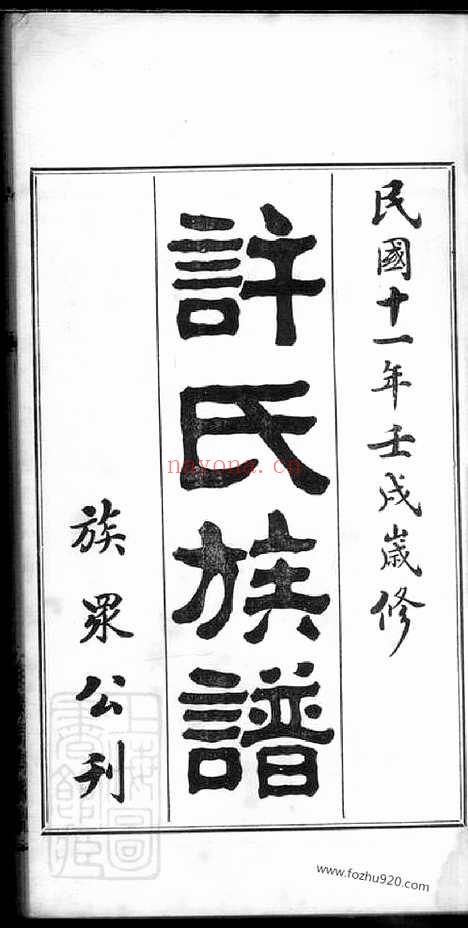 民國十一年壬戌歲修
許氏族譜
族眾公刊
nayona.cn
www.fozhu920.com